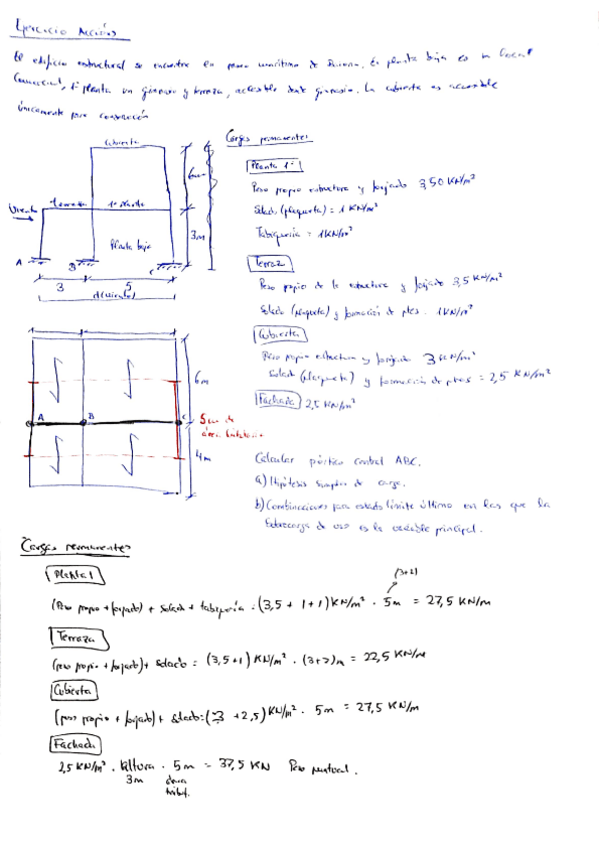 Ejercicio Acciones
El edificio estructural se encuentra en paseo marítimo de . En planta baja es un local
comercial, 1ª planta un gimnasio y terraza, accesible desde gimnasio. La cubierta es accesible
únicamente para conservación
Cargas permanentes
Planta 1ª
Peso propio estructura y forjado 3,50 KN/m²
Solado (plaqueta) = 1 KN/m²
Tabiquería = 1KN/m²
Terraza
Peso propio de la estructura y forjado 3,5 KN/m²
Solado (plaqueta) y formación de ptes. 1KN/m²
Cubierta
Peso propio estructura y forjado 3 KN/m²
Solado (plaqueta) y formación de ptes = 2,5 KN/m²
Fachada 2,5 KN/m²
Cubierta
6m
Viento
terraza
1ª Planta
Planta baja
3m
A
B
C
3
5
d (viento)
6m
A
B
C
5m de
área tributaria
4m
Calcular pórtico central ABC.
a) Hipótesis simples de carga.
b) Combinaciones para estado límite último en las que la
sobrecarga de uso es la variable principal.
Cargas permanentes
Planta 1
(3+2)
(Peso propio + forjado) + solado + tabiquería = (3,5 + 1 + 1) KN/m² · 5m = 27,5 KN/m
Terraza
(peso propio + forjado) + solado = (3,5+1) KN/m² · (3+2)m = 22,5 KN/m
Cubierta
(peso propio + forjado) + solado: (3 + 2,5) KN/m² · 5m = 27,5 KN/m
Fachada
2,5 KN/m² · altura · 5m = 37,5 KN Peso puntual.
3m
área
tribut.